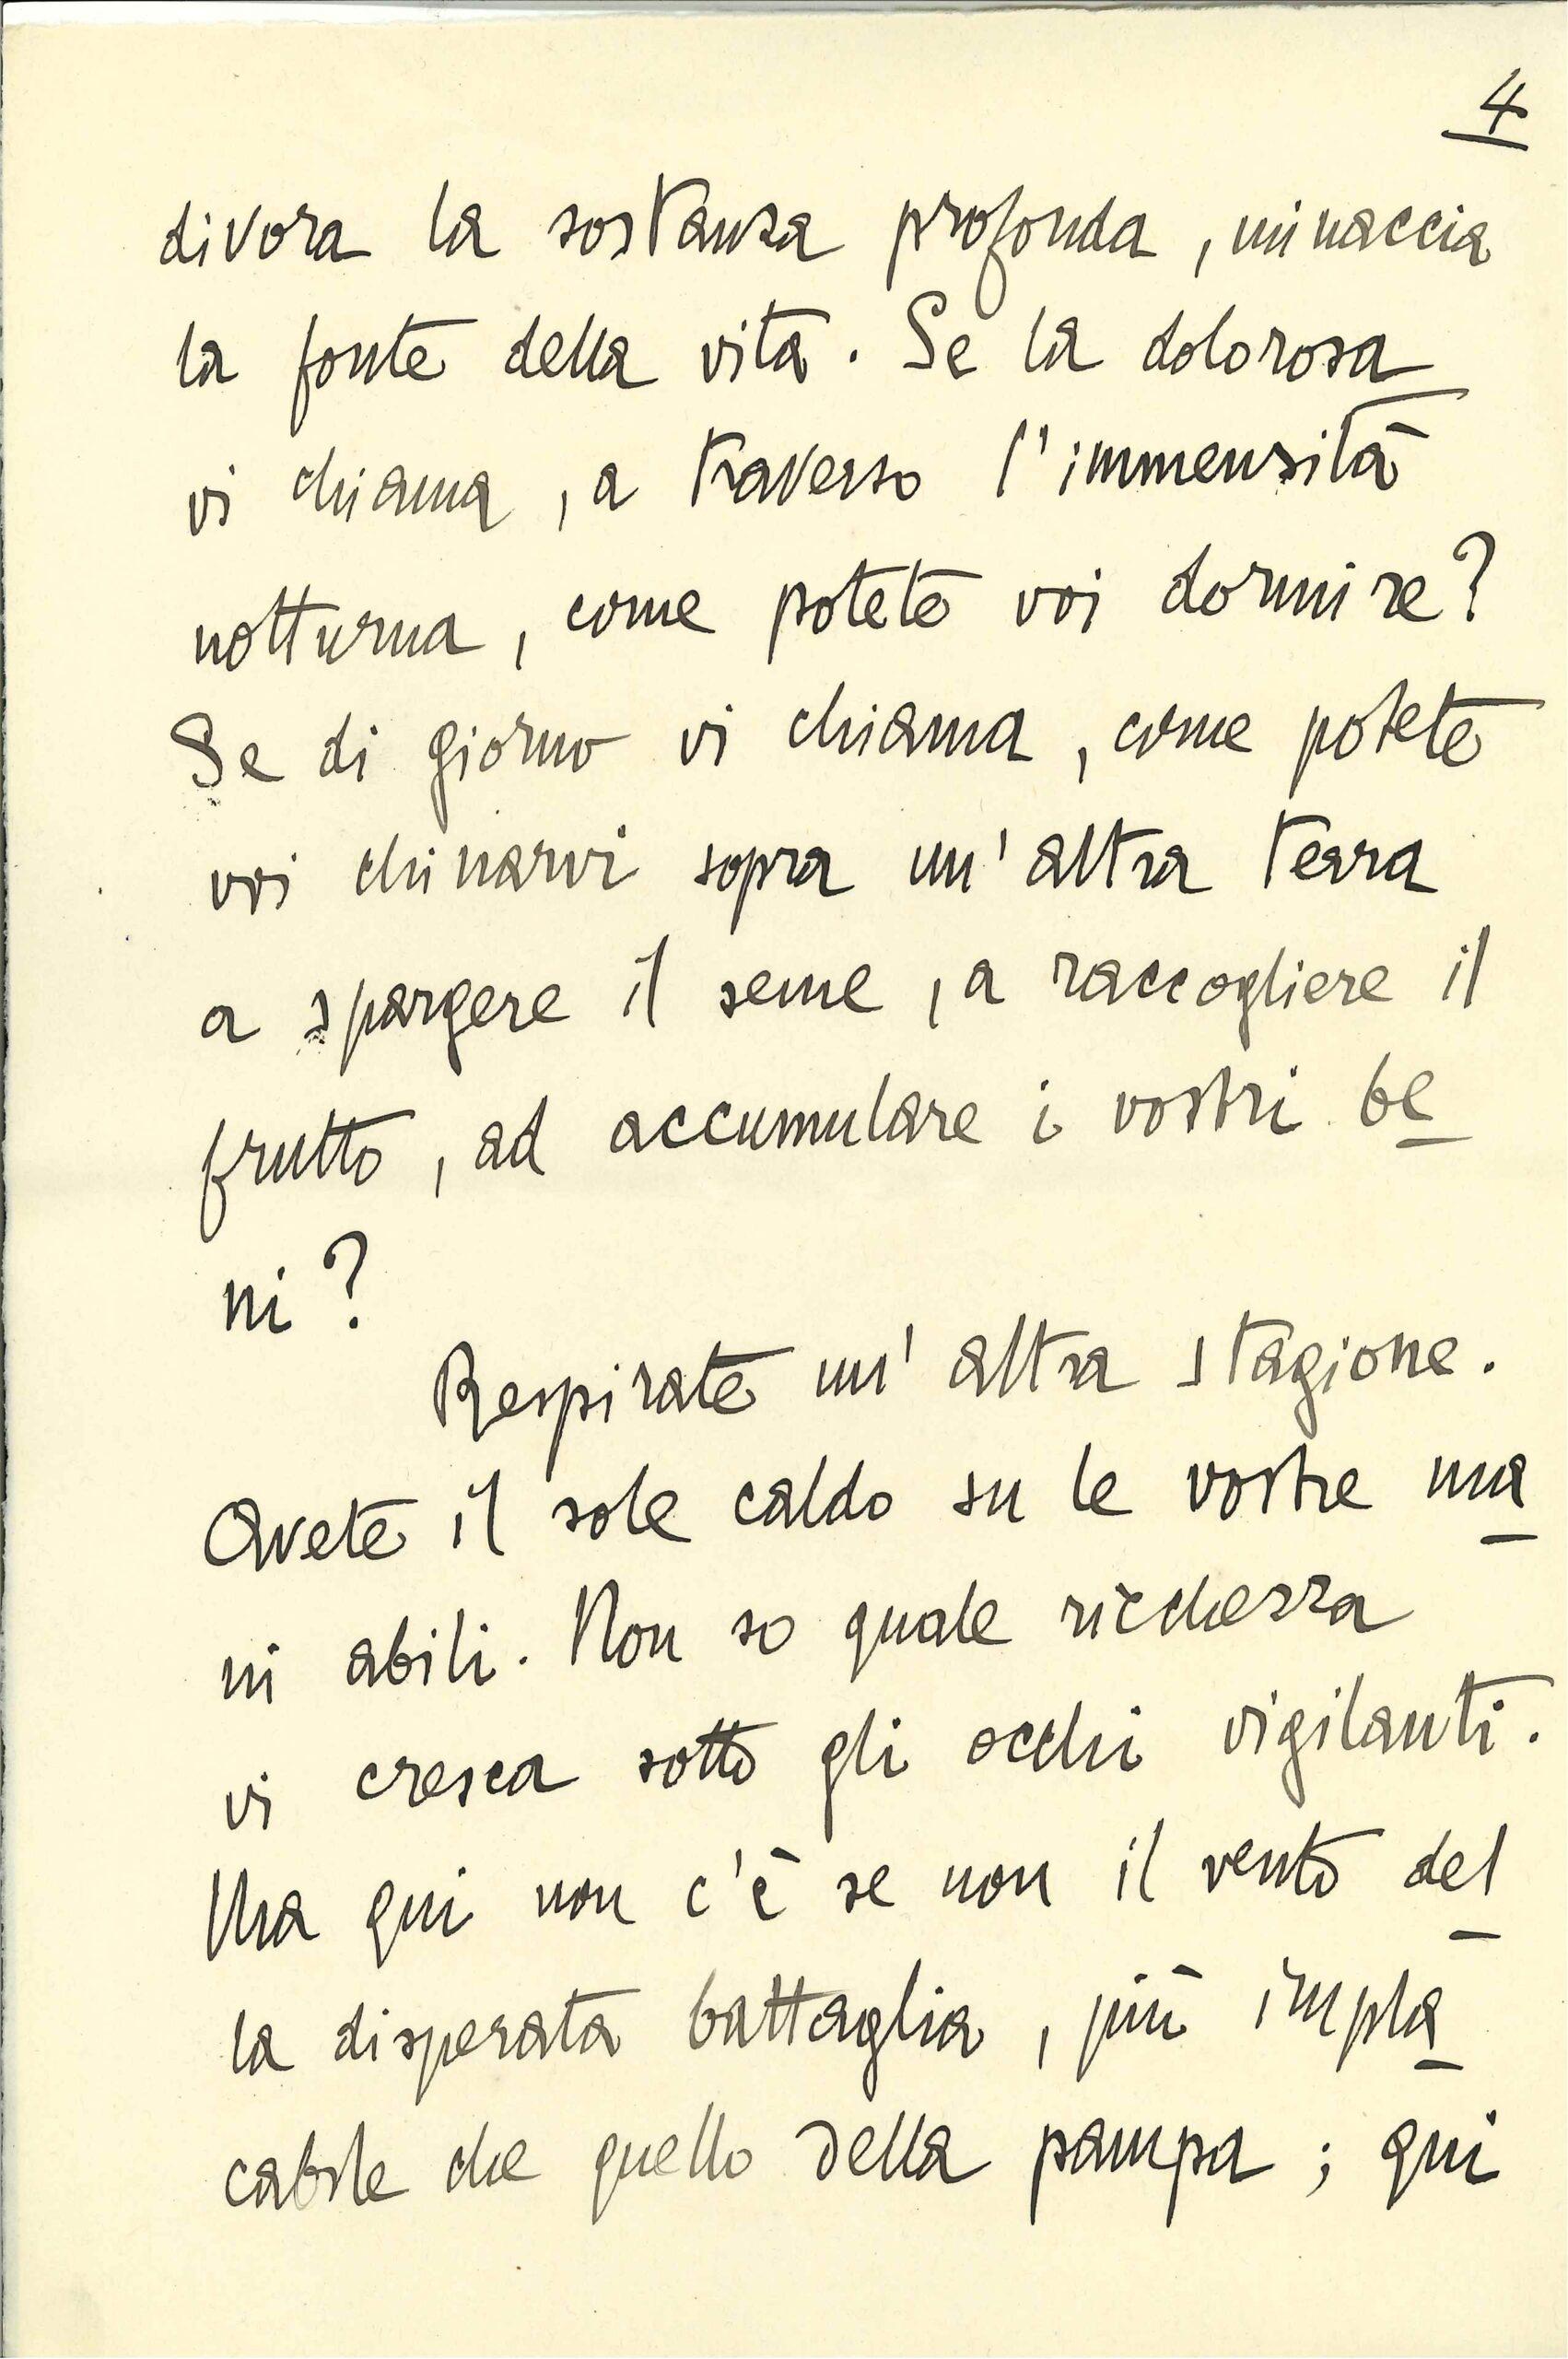 4
divora la sostanza profonda, minaccia
la fonte della vita. Se la dolorosa
vi chiama, a traverso l'immensità
notturna, come potete voi dormire?
Se di giorno vi chiama, come potete
voi chinarvi sopra un'altra terra
a spargere il seme, a raccogliere il
frutto, ad accumulare i vostri be
ni?
Respirate un'altra stagione.
Avete il sole caldo su le vostre ma
ni abili. Non so quale ricchezza
vi cresca sotto gli occhi vigilanti.
Ma qui non c'è se non il vento del
la disperata battaglia, più impla
cabile che quello della pampa; qui